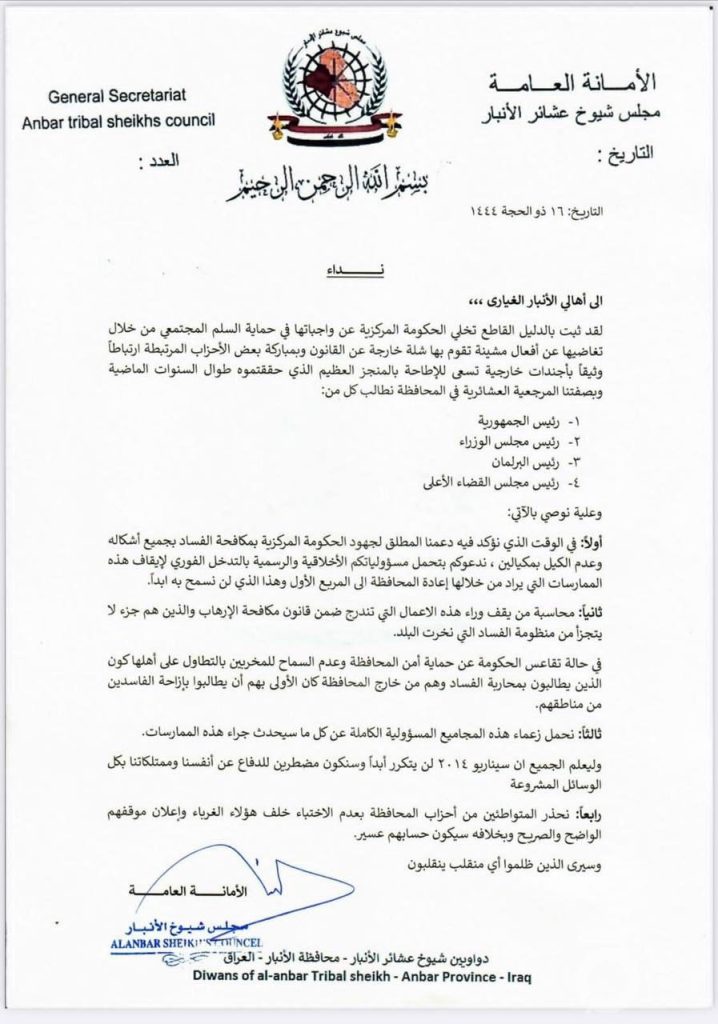 مجلس شيوخ عشائر الأنبار
General Secretariat
Anbar tribal sheikhs council
العدد :
الأمـــانة العـــامـــة
مجلس شيوخ عشائر الأنبار
التاريخ :
بسم الله الرحمن الرحيم
التاريخ: ١٦ ذو الحجة ١٤٤٤
نـــــداء
الى أهالي الأنبار الغيارى ،،،
لقد ثبت بالدليل القاطع تخلي الحكومة المركزية عن واجباتها في حماية السلم المجتمعي من خلال
تغاضيها عن أفعال مشينة تقوم بها شلة خارجة عن القانون وبمباركة بعض الأحزاب المرتبطة ارتباطاً
وثيقاً بأجندات خارجية تسعى للإطاحة بالمنجز العظيم الذي حققتموه طوال السنوات الماضية
وبصفتنا المرجعية العشائرية في المحافظة نطالب كل من:
١- رئيس الجمهورية
٢- رئيس مجلس الوزراء
٣- رئيس البرلمان
٤- رئيس مجلس القضاء الأعلى
وعلية نوصي بالآتي:
أولاً: في الوقت الذي نؤكد فيه دعمنا المطلق لجهود الحكومة المركزية بمكافحة الفساد بجميع أشكاله
وعدم الكيل بمكيالين ، ندعوكم بتحمل مسؤولياتكم الأخلاقية والرسمية بالتدخل الفوري لإيقاف هذه
الممارسات التي يراد من خلالها إعادة المحافظة الى المربع الأول وهذا الذي لن نسمح به ابداً.
ثانياً: محاسبة من يقف وراء هذه الاعمال التي تندرج ضمن قانون مكافحة الإرهاب والذين هم جزء لا
يتجزأ من منظومة الفساد التي نخرت البلد.
في حالة تقاعس الحكومة عن حماية أمن المحافظة وعدم السماح للمخربين بالتطاول على أهلها كون
الذين يطالبون بمحاربة الفساد وهم من خارج المحافظة كان الأولى بهم أن يطالبوا بإزاحة الفاسدين
من مناطقهم.
ثالثاً: نحمل زعماء هذه المجاميع المسؤولية الكاملة عن كل ما سيحدث جراء هذه الممارسات.
وليعلم الجميع ان سيناريو ٢٠١٤ لن يتكرر أبداً وسنكون مضطرين للدفاع عن أنفسنا وممتلكاتنا بكل
الوسائل المشروعة
رابعاً: نحذر المتواطئين من أحزاب المحافظة بعدم الاختباء خلف هؤلاء الغرباء وإعلان موقفهم
الواضح والصريح وبخلافه سيكون حسابهم عسير.
وسيرى الذين ظلموا أي منقلب ينقلبون
الأمـــانـــة العـــامـــة
مجلس شيوخ الأنبار
ALANBAR SHEIKH'S COUNCEL
دواوين شيوخ عشائر الأنبار - محافظة الأنبار - العراق
Diwans of al-anbar Tribal sheikh - Anbar Province - Iraq